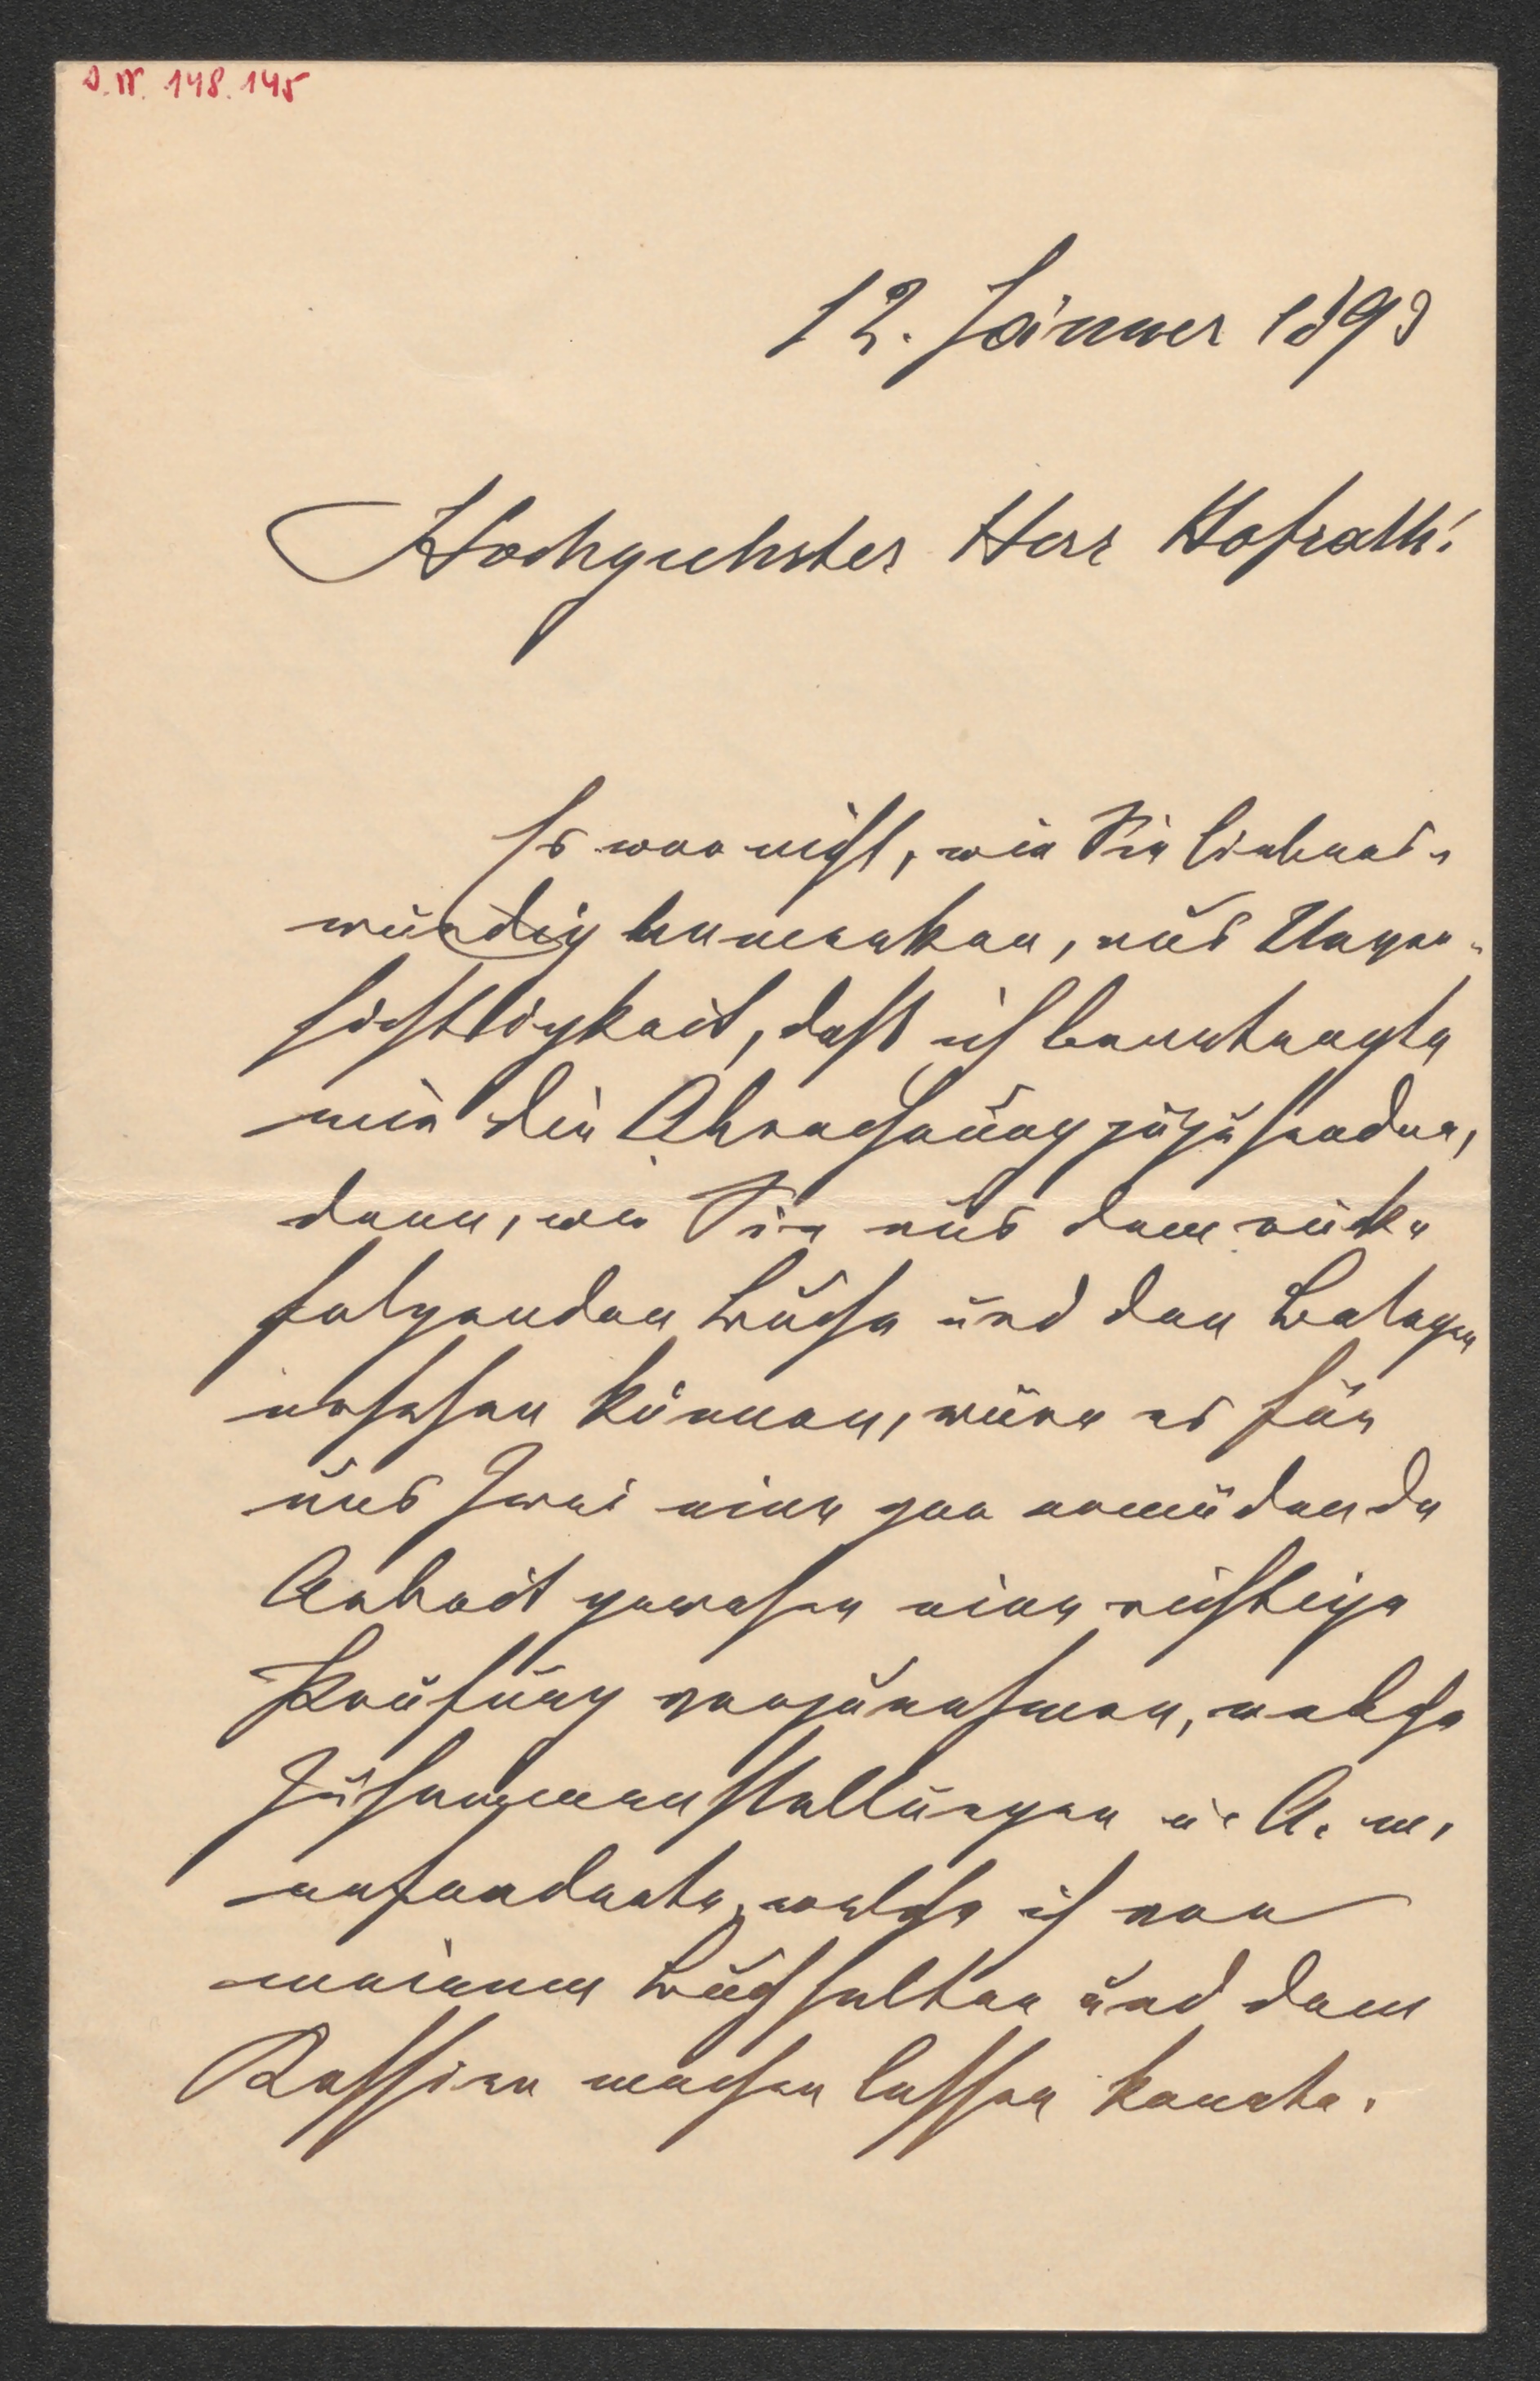 I.N. 148.145
12. Jänner 1893
Hochgeehrter Herr Hofrath!
Es war nicht, wie Sie liebens-
würdig bemerken, aus Unvor-
sichtigkeit, daß ich beantragte
mir die Abrechnung zuzusenden,
denn, wie Sie aus dem rück-
folgenden Buche und den Belegen
ersehen können, wäre es für
uns Zwei eine gar ermüdende
Arbeit gewesen eine richtige
Prüfung vorzunehmen, welche
Zusammenstellungen u. A. m.
erforderte, welche ich von
meinem Buchhalter und dem
Kassier machen lassen konnte.